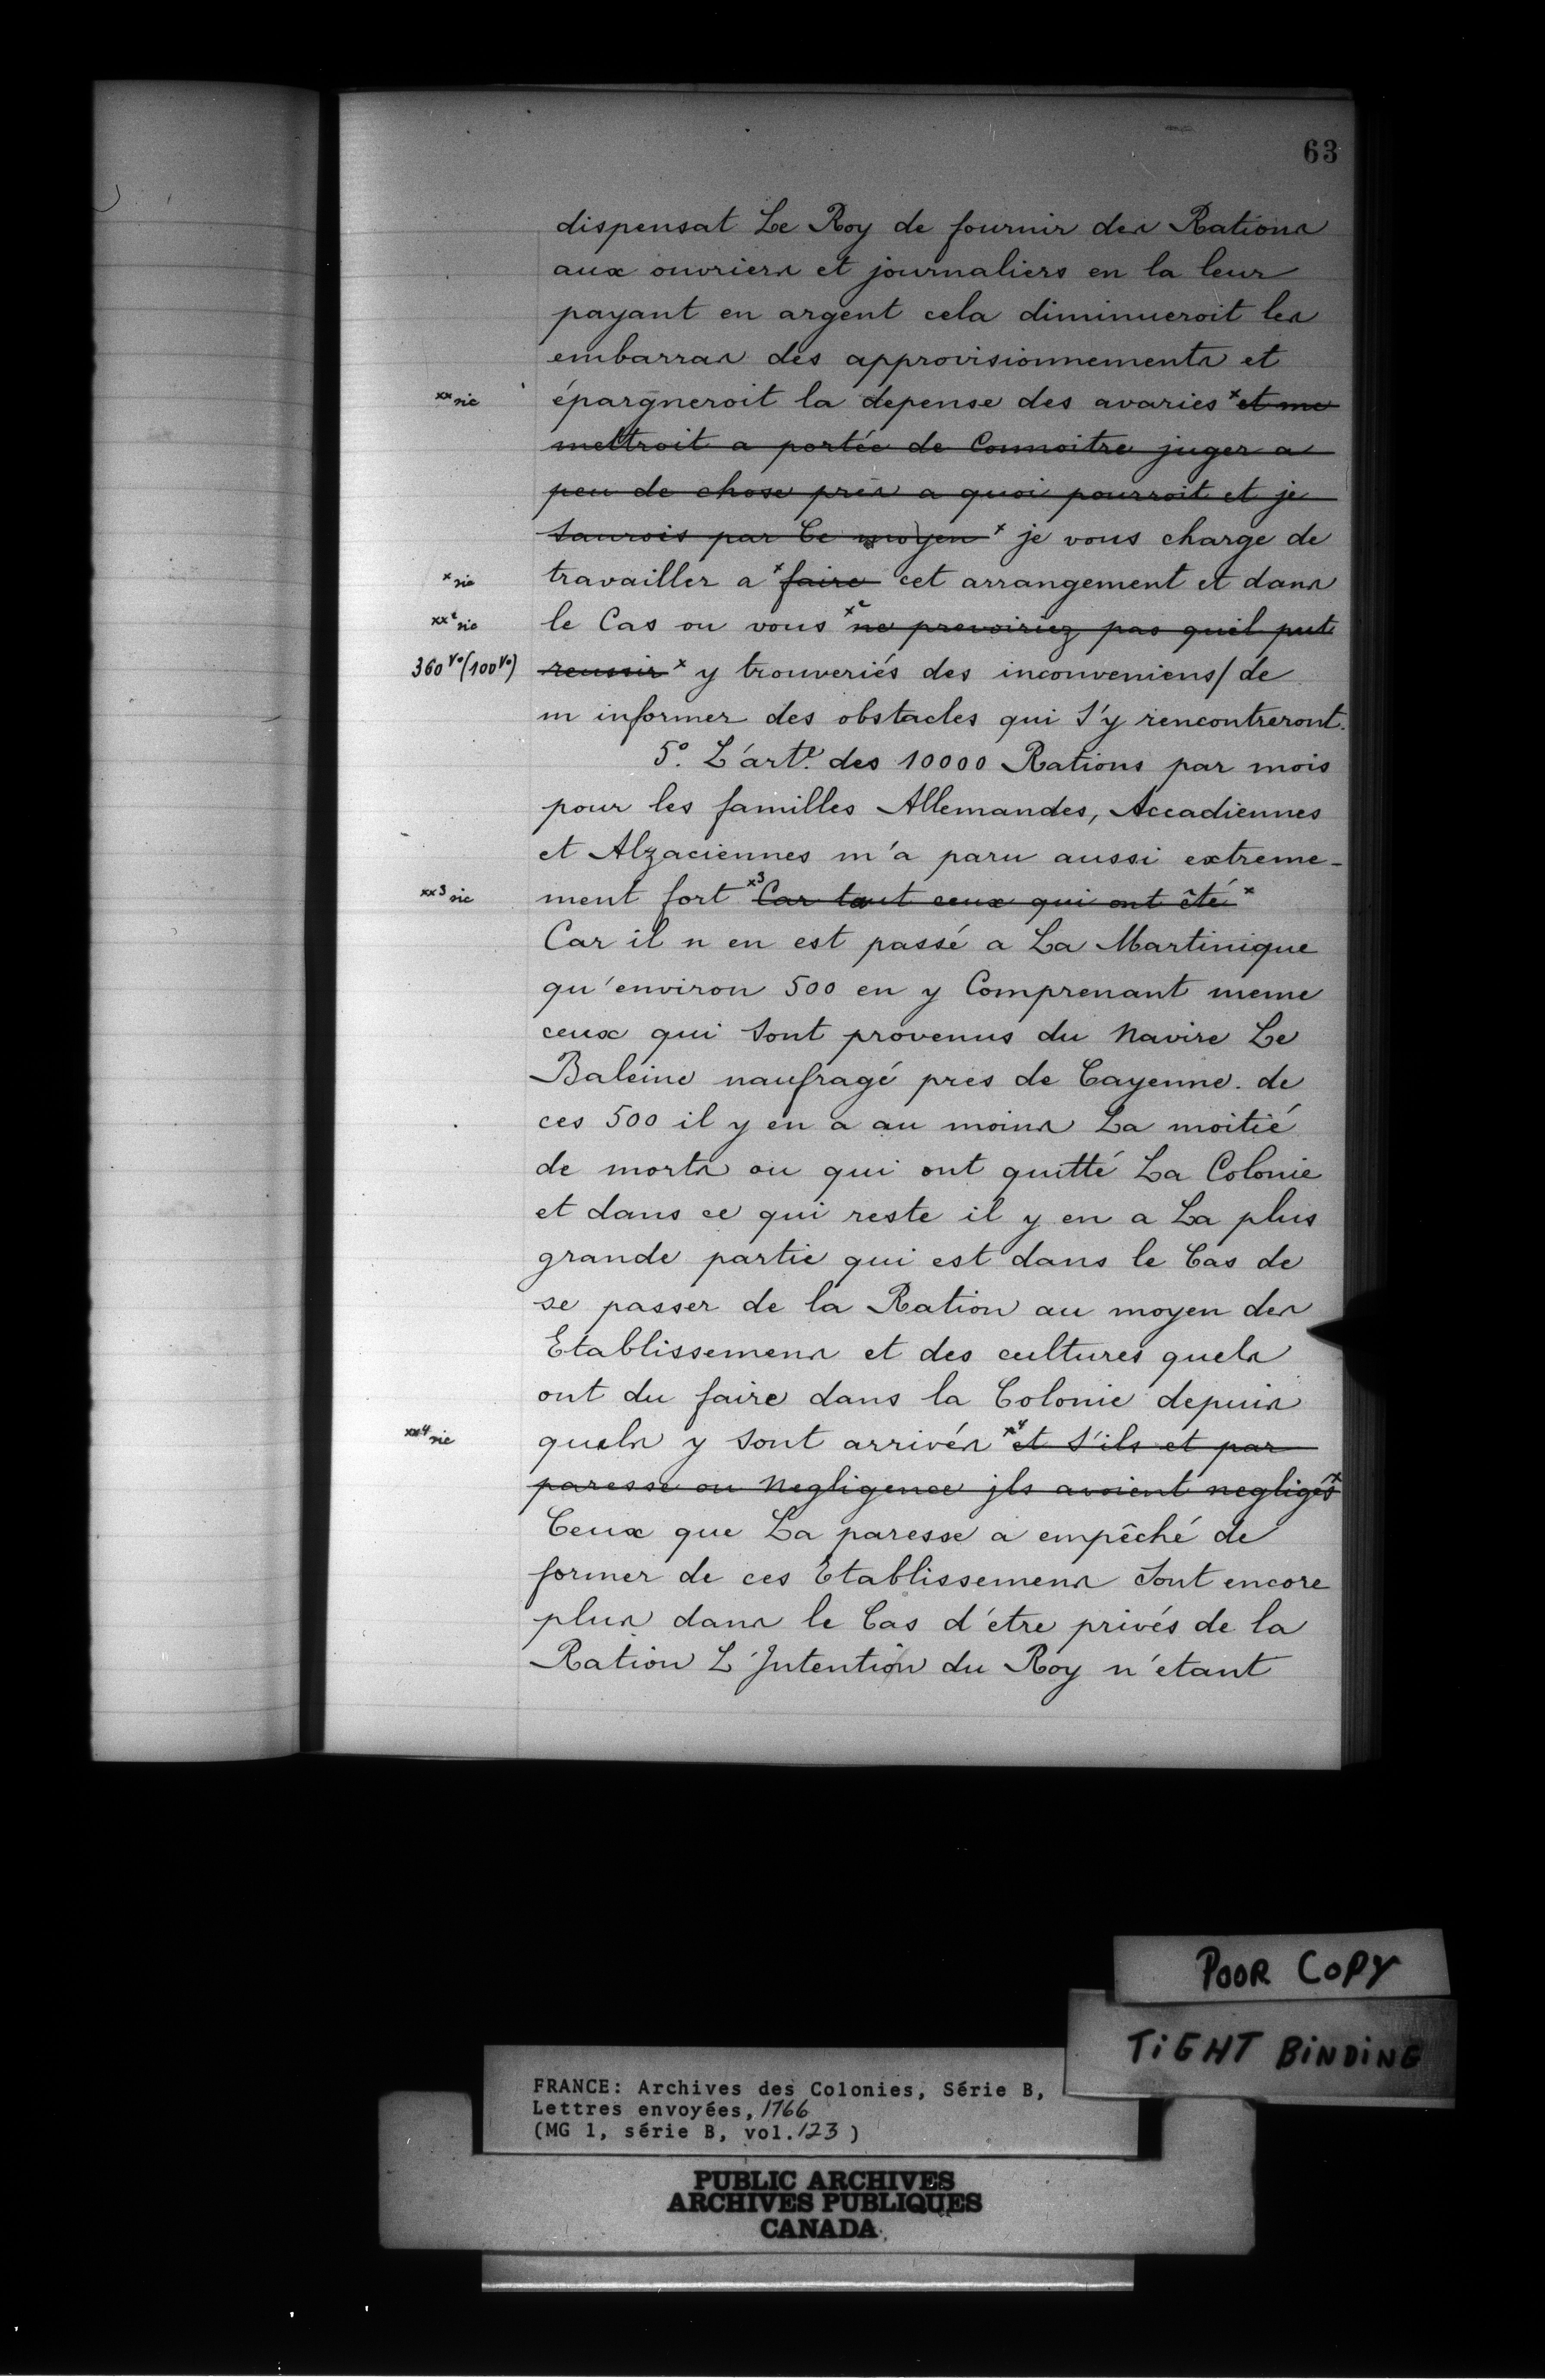 63
dispensat Le Roy de fournir des Rations
aux ouvriers et journaliers en la leur
payant en argent cela diminueroit les
embarras des approvisionnements et
xx sic épargneroit la depense des avaries x et me
mettroit a portée de Connoitre juger a
peu de chose près a quoi pourroit et je
saurois par Ce moyen x je vous charge de
x sic travailler a x faire cet arrangement et dans
xx2 sic le Cas ou vous x2 ne prevoiriez pas quil put
360 vo (100 vo) reussir x y trouveriés des inconveniens/ de
m informer des obstacles qui s'y rencontreront.
5º. L'arte. des 10000 Rations par mois
pour les familles Allemandes, Accadiennes
et Alzaciennes m'a paru aussi extreme-
xx3 sic ment fort x3 Car tout ceux qui ont êté x
Car il n en est passé a La Martinique
qu'environ 500 en y Comprenant meme
ceux qui sont provenus du Navire Le
Baleine naufragé pres de Cayenne. de
ces 500 il y en a au moins La moitié
de morts ou qui ont quitté La Colonie
et dans ce qui reste il y en a La plus
grande partie qui est dans le Cas de
se passer de la Ration au moyen des
Etablissemens et des cultures quels
ont du faire dans la Colonie depuis
xx4 sic quels y sont arrivés x4 et s'ils et par
paresse ou Negligence jls avoient negligés x
Ceux que La paresse a empêché de
former de ces Etablissemens sont encore
plus dans le Cas d'etre privés de la
Ration L'Intention du Roy n'etant
POOR COPY
TIGHT BINDING
FRANCE: Archives des Colonies, Série B,
Lettres envoyées, 1766
(MG 1, série B, vol. 123 )
PUBLIC ARCHIVES
ARCHIVES PUBLIQUES
CANADA